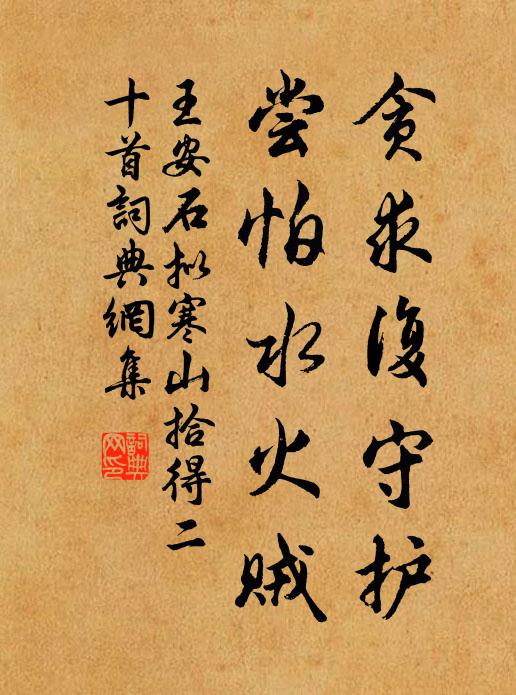 贪求復守护
尝怕水火贼
王安石拟寒山拾得二
十首詞典網集
詞典
网印